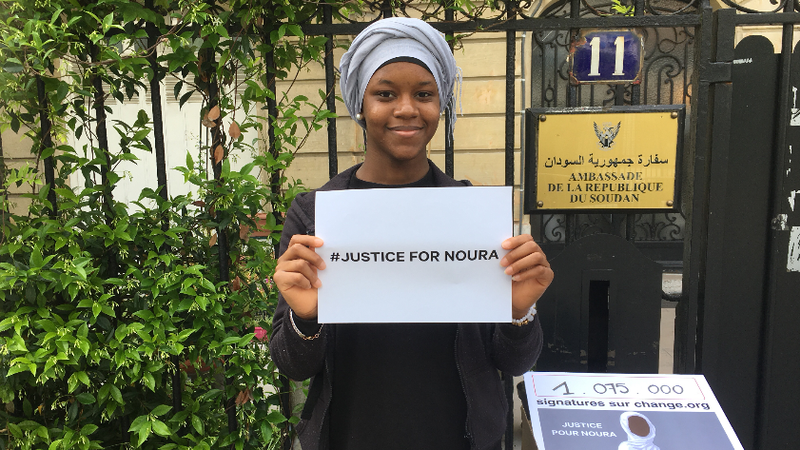 11
سفارة جمهورية السودان
AMBASSADE
DE LA REPUBLIQUE
DU SOUDAN
#JUSTICE FOR NOURA
1.075.000
signatures sur change.org
JUSTICE
POUR NOURA